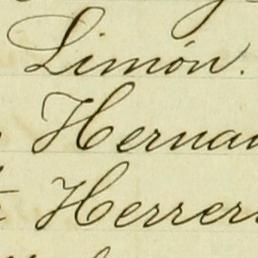 Limón.
Herna
Herrer